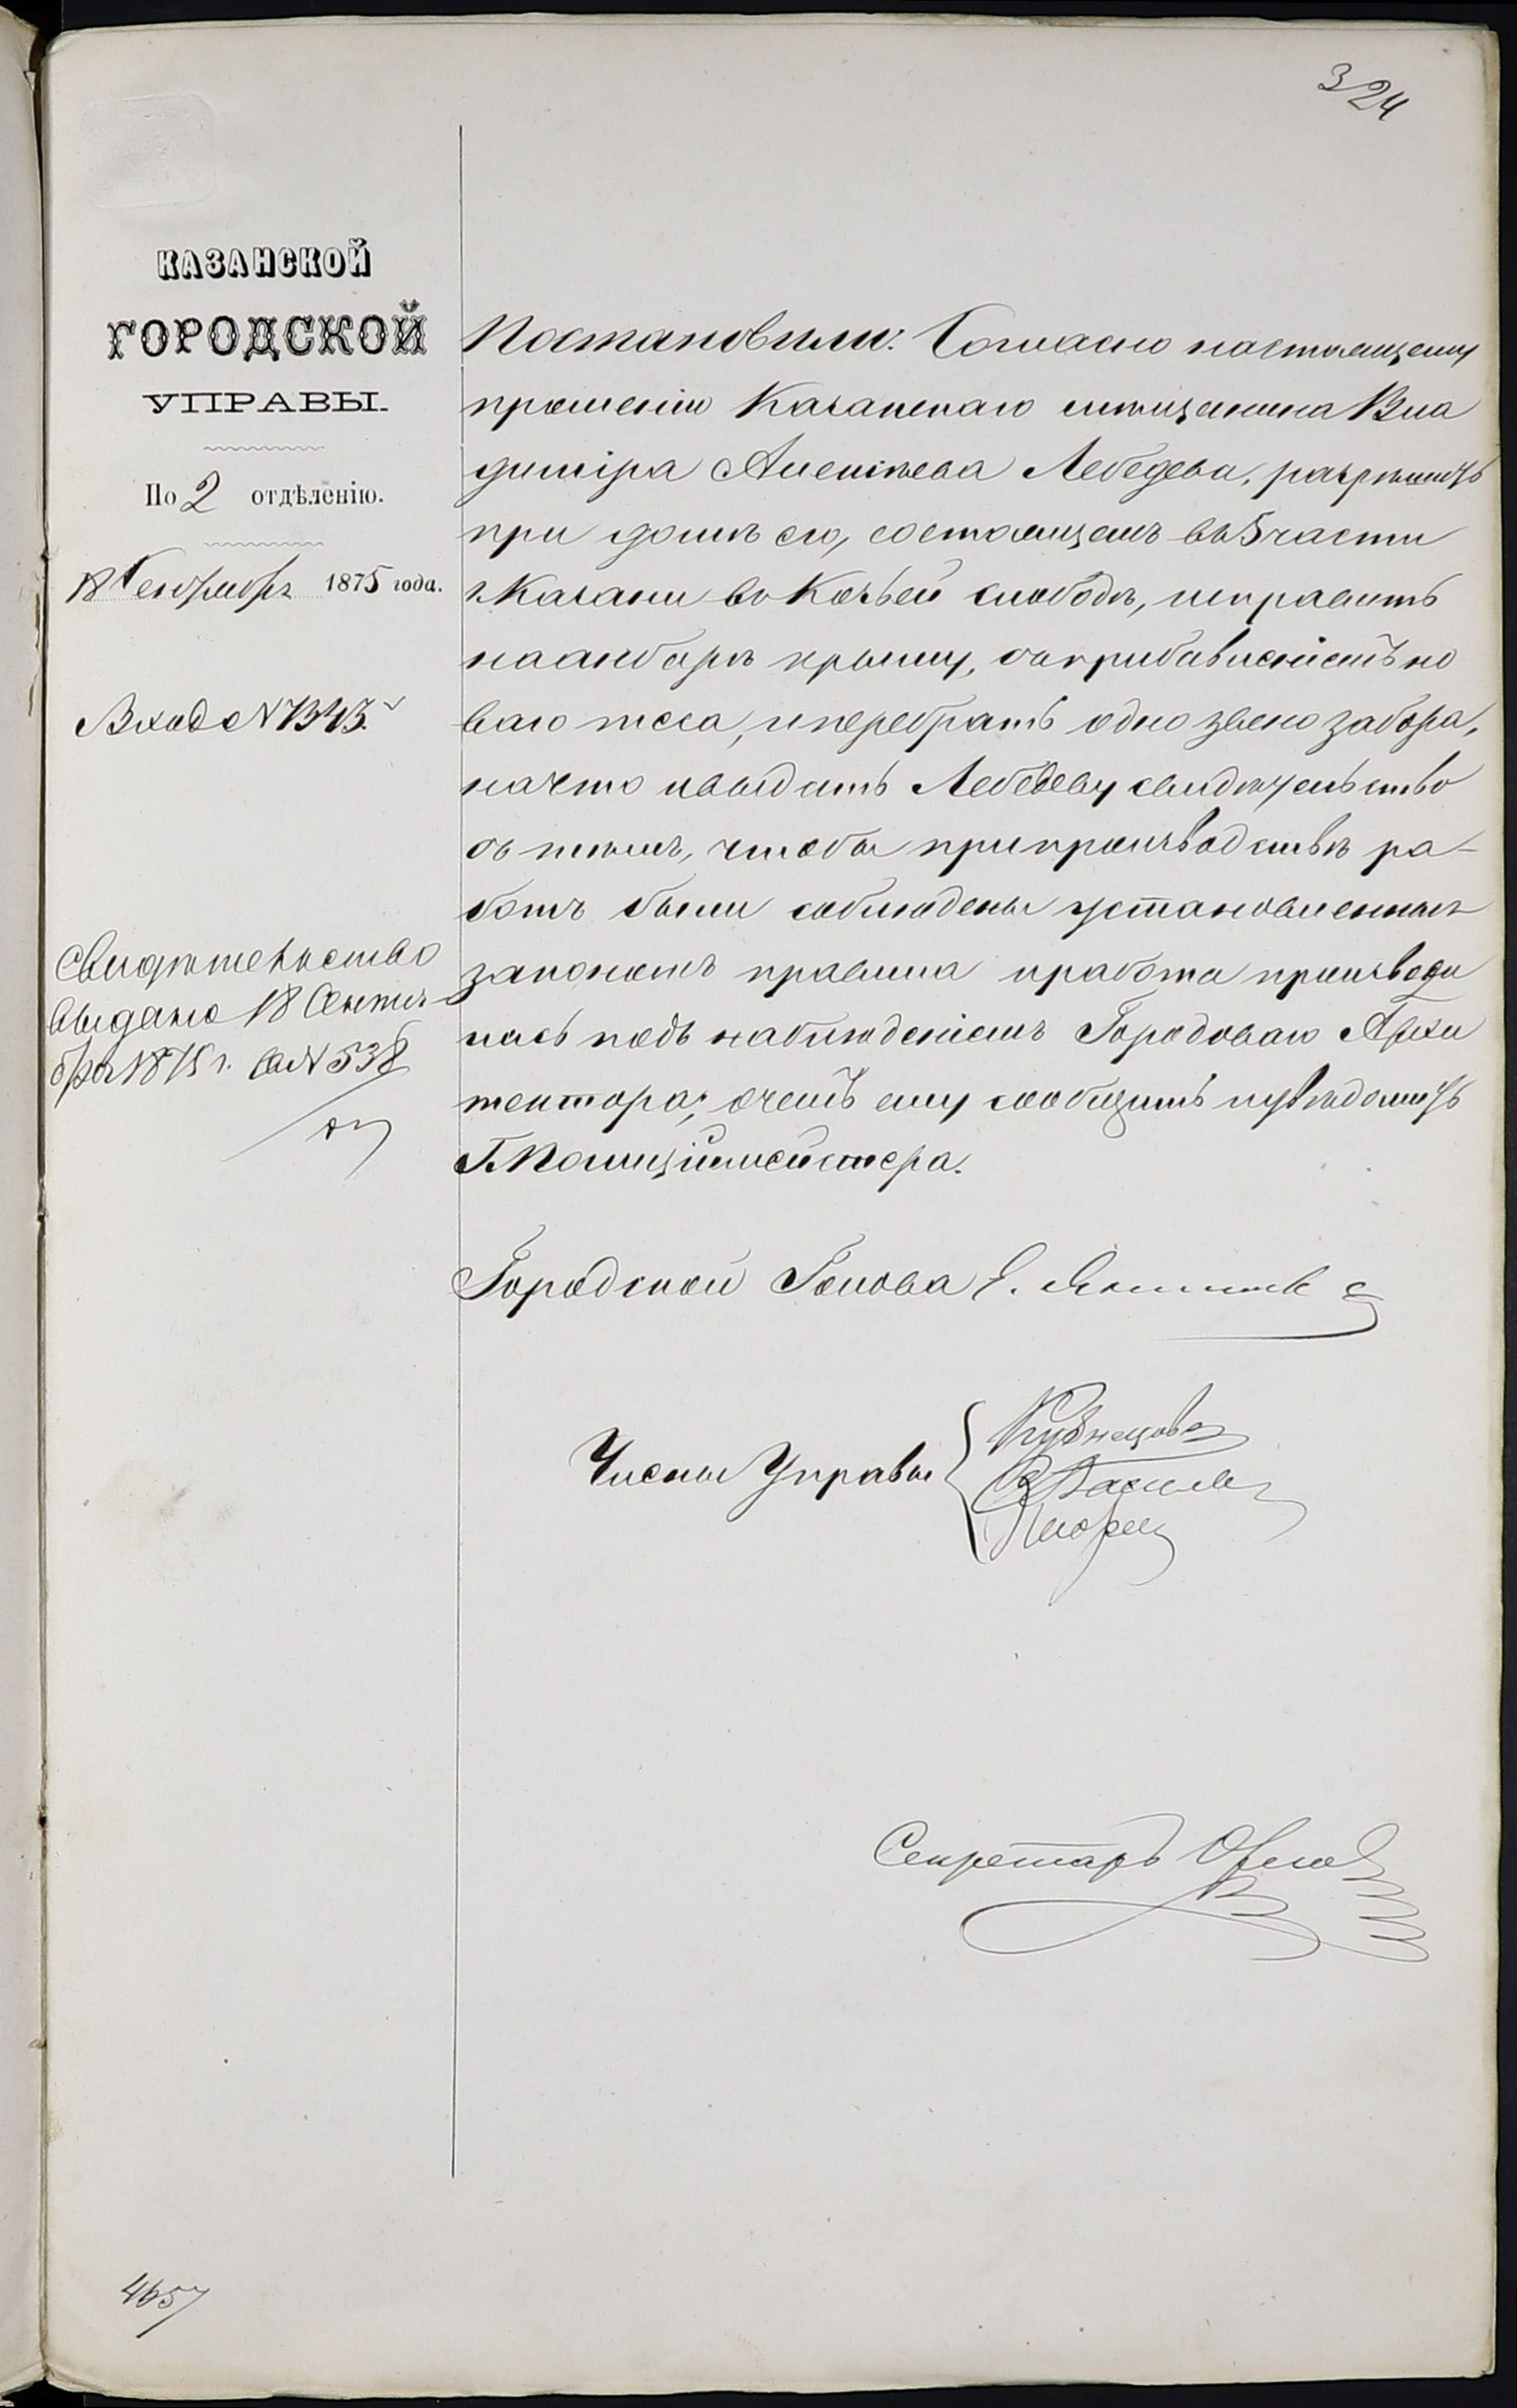 324
КАЗАНСКОЙ
ГОРОДСКОЙ
УПРАВЫ.
По 2 отдѣленію.
18 Сентября 1875 года.
Вход №
Свидѣтельство
выдано 18 Сентя-
бря 1875 г. за № 538
Постановили: Согласно настоящему
прошенію Казанскаго мѣщанина Вла
диміра Алексѣева Лебедева, разрѣшить
при домѣ его, состоящемъ въ 5 части
г. Казани въ Козьей слободѣ, исправить
на анбарѣ крышу, съ прибавленіемъ но
ваго теса, и перебрать одно звено забора,
на что и выдать Лебедеву свидѣтельство
съ тѣмъ, чтобы при производствѣ ра-
ботъ были соблюдены установленныя
закономъ правила и работа производи
лась подъ наблюденіемъ Городоваго Архи
тектора; о чемъ ему сообщить и увѣдомить
Г. Полиціймейстера.
Городской Голова Е.
Члены Управы
Кузнецовъ
Секретарь
4657